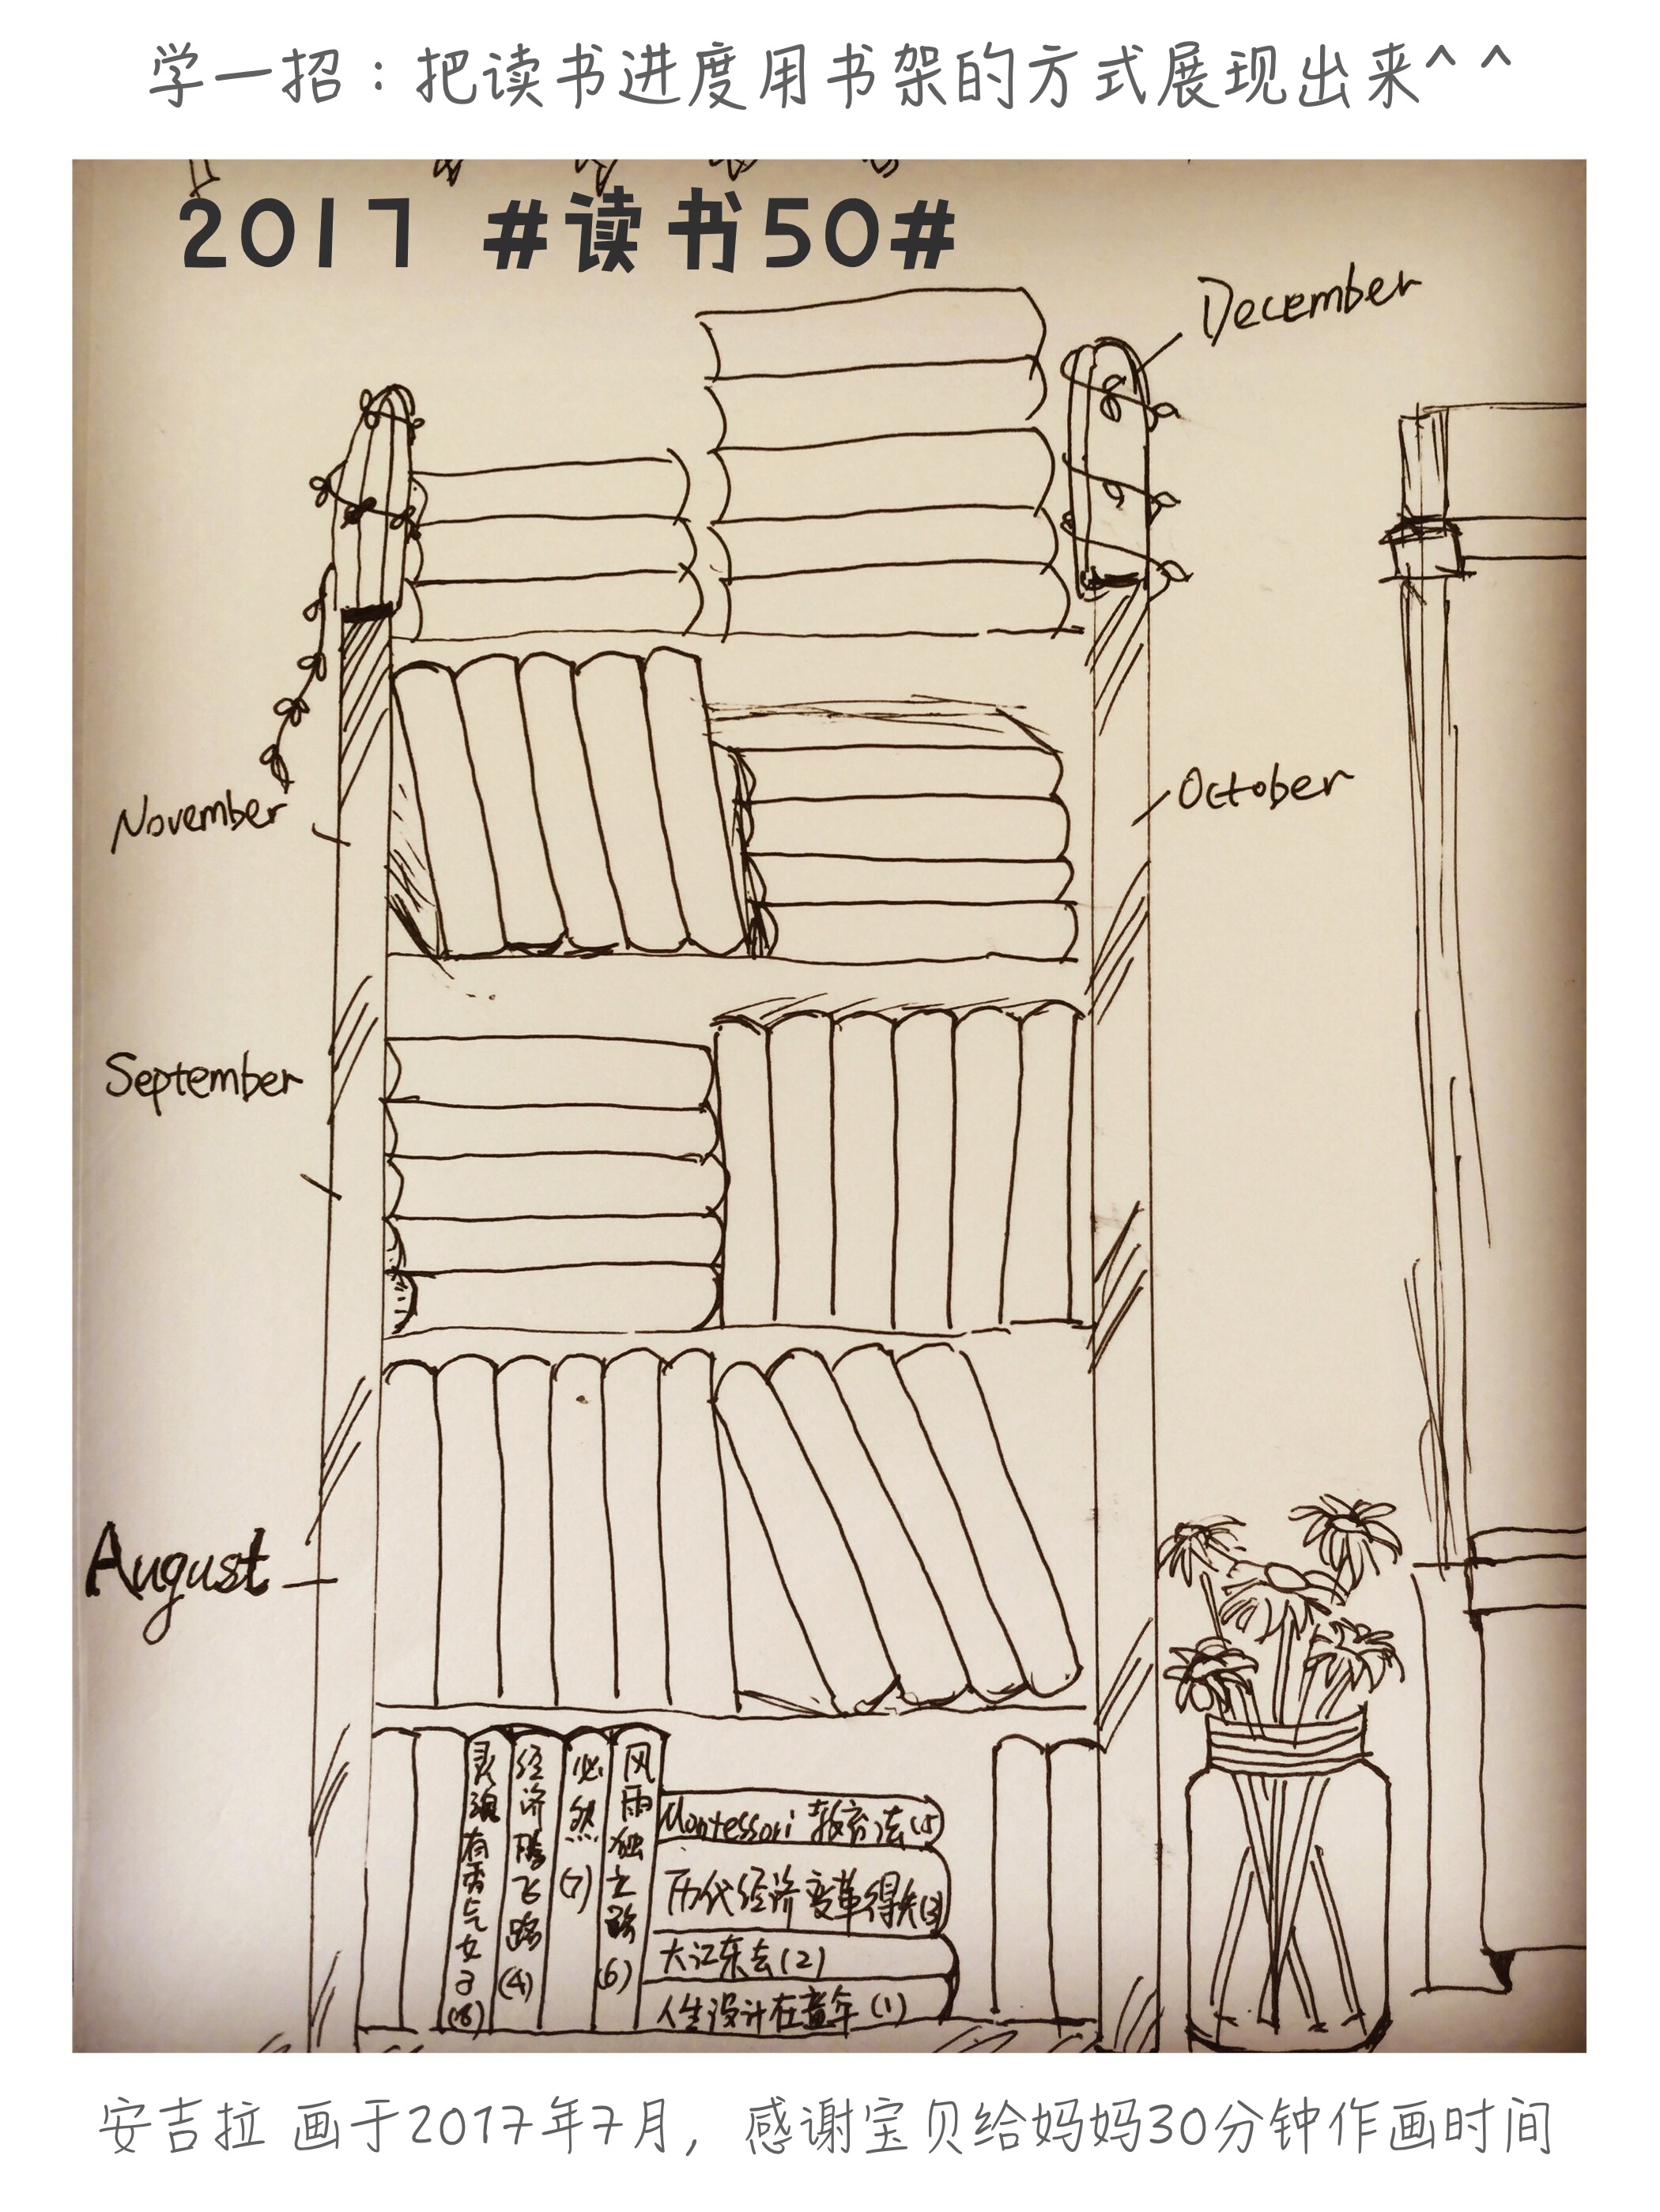 学一招：把读书进度用书架的方式展现出来^ ^
2017 #读书50#
December
November
October
September
August
灵魂有香气女子(8)
经济腾飞路(4)
必然(7)
风雨独立路(6)
Montessori 教育法(5)
历代经济变革得失(3)
大江东去(2)
人生设计在童年(1)
安吉拉 画于2017年7月，感谢宝贝给妈妈30分钟作画时间